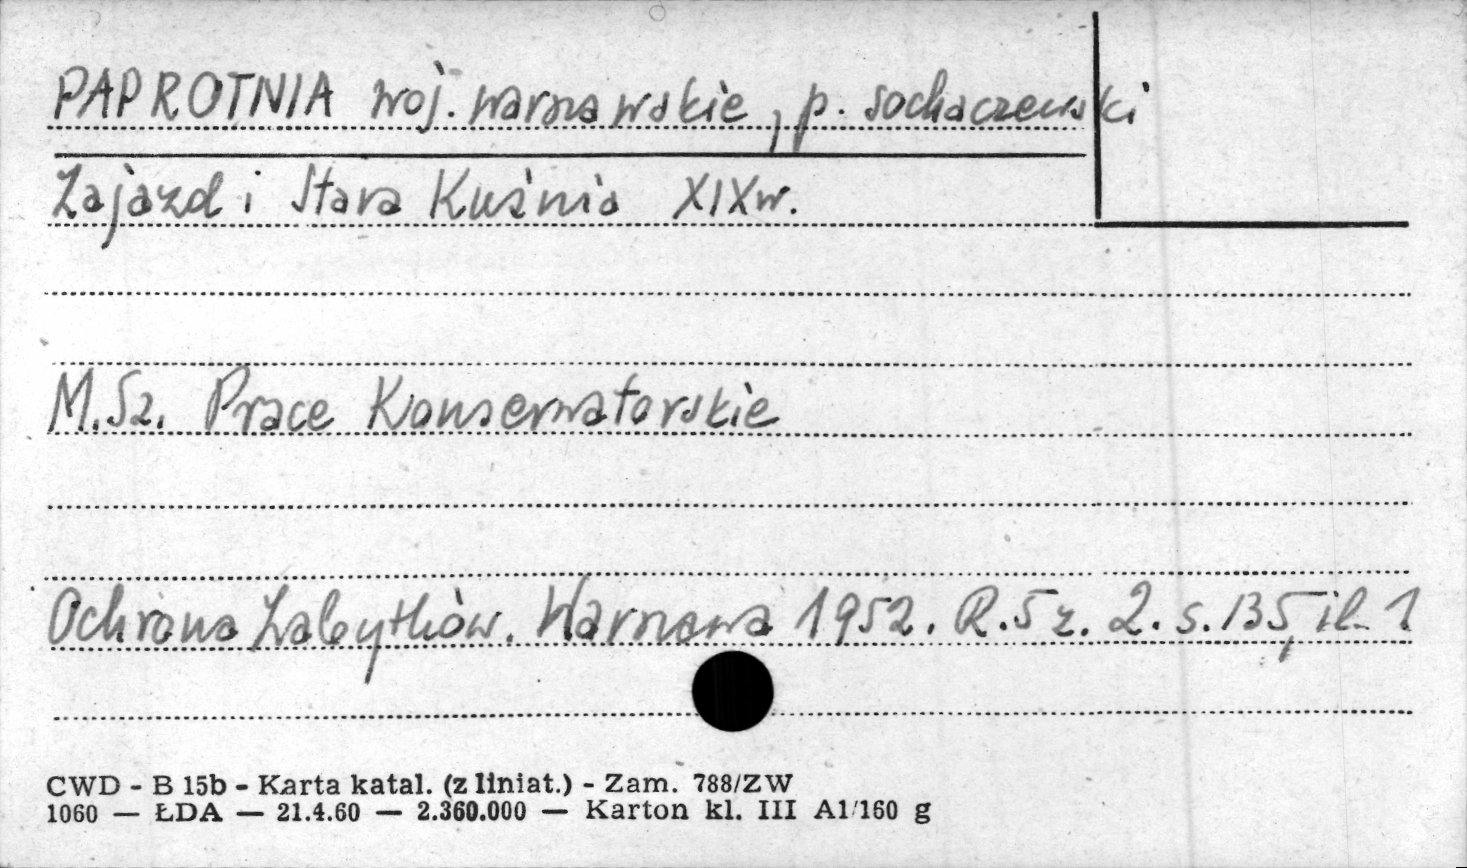 PAPROTNIA woj. warszawskie, p. sochaczewski
Zajazd i Stara Kuźnia XIXw.
M.Sz. Prace Konserwatorskie
Ochrona Zabytków. Warszawa 1952. R.5 z. 2. s. 135, il. 1
CWD - B 15b - Karta katal. (z liniat.) - Zam. 788/ZW
1060 — ŁDA — 21.4.60 — 2.360.000 — Karton kl. III A1/160 g